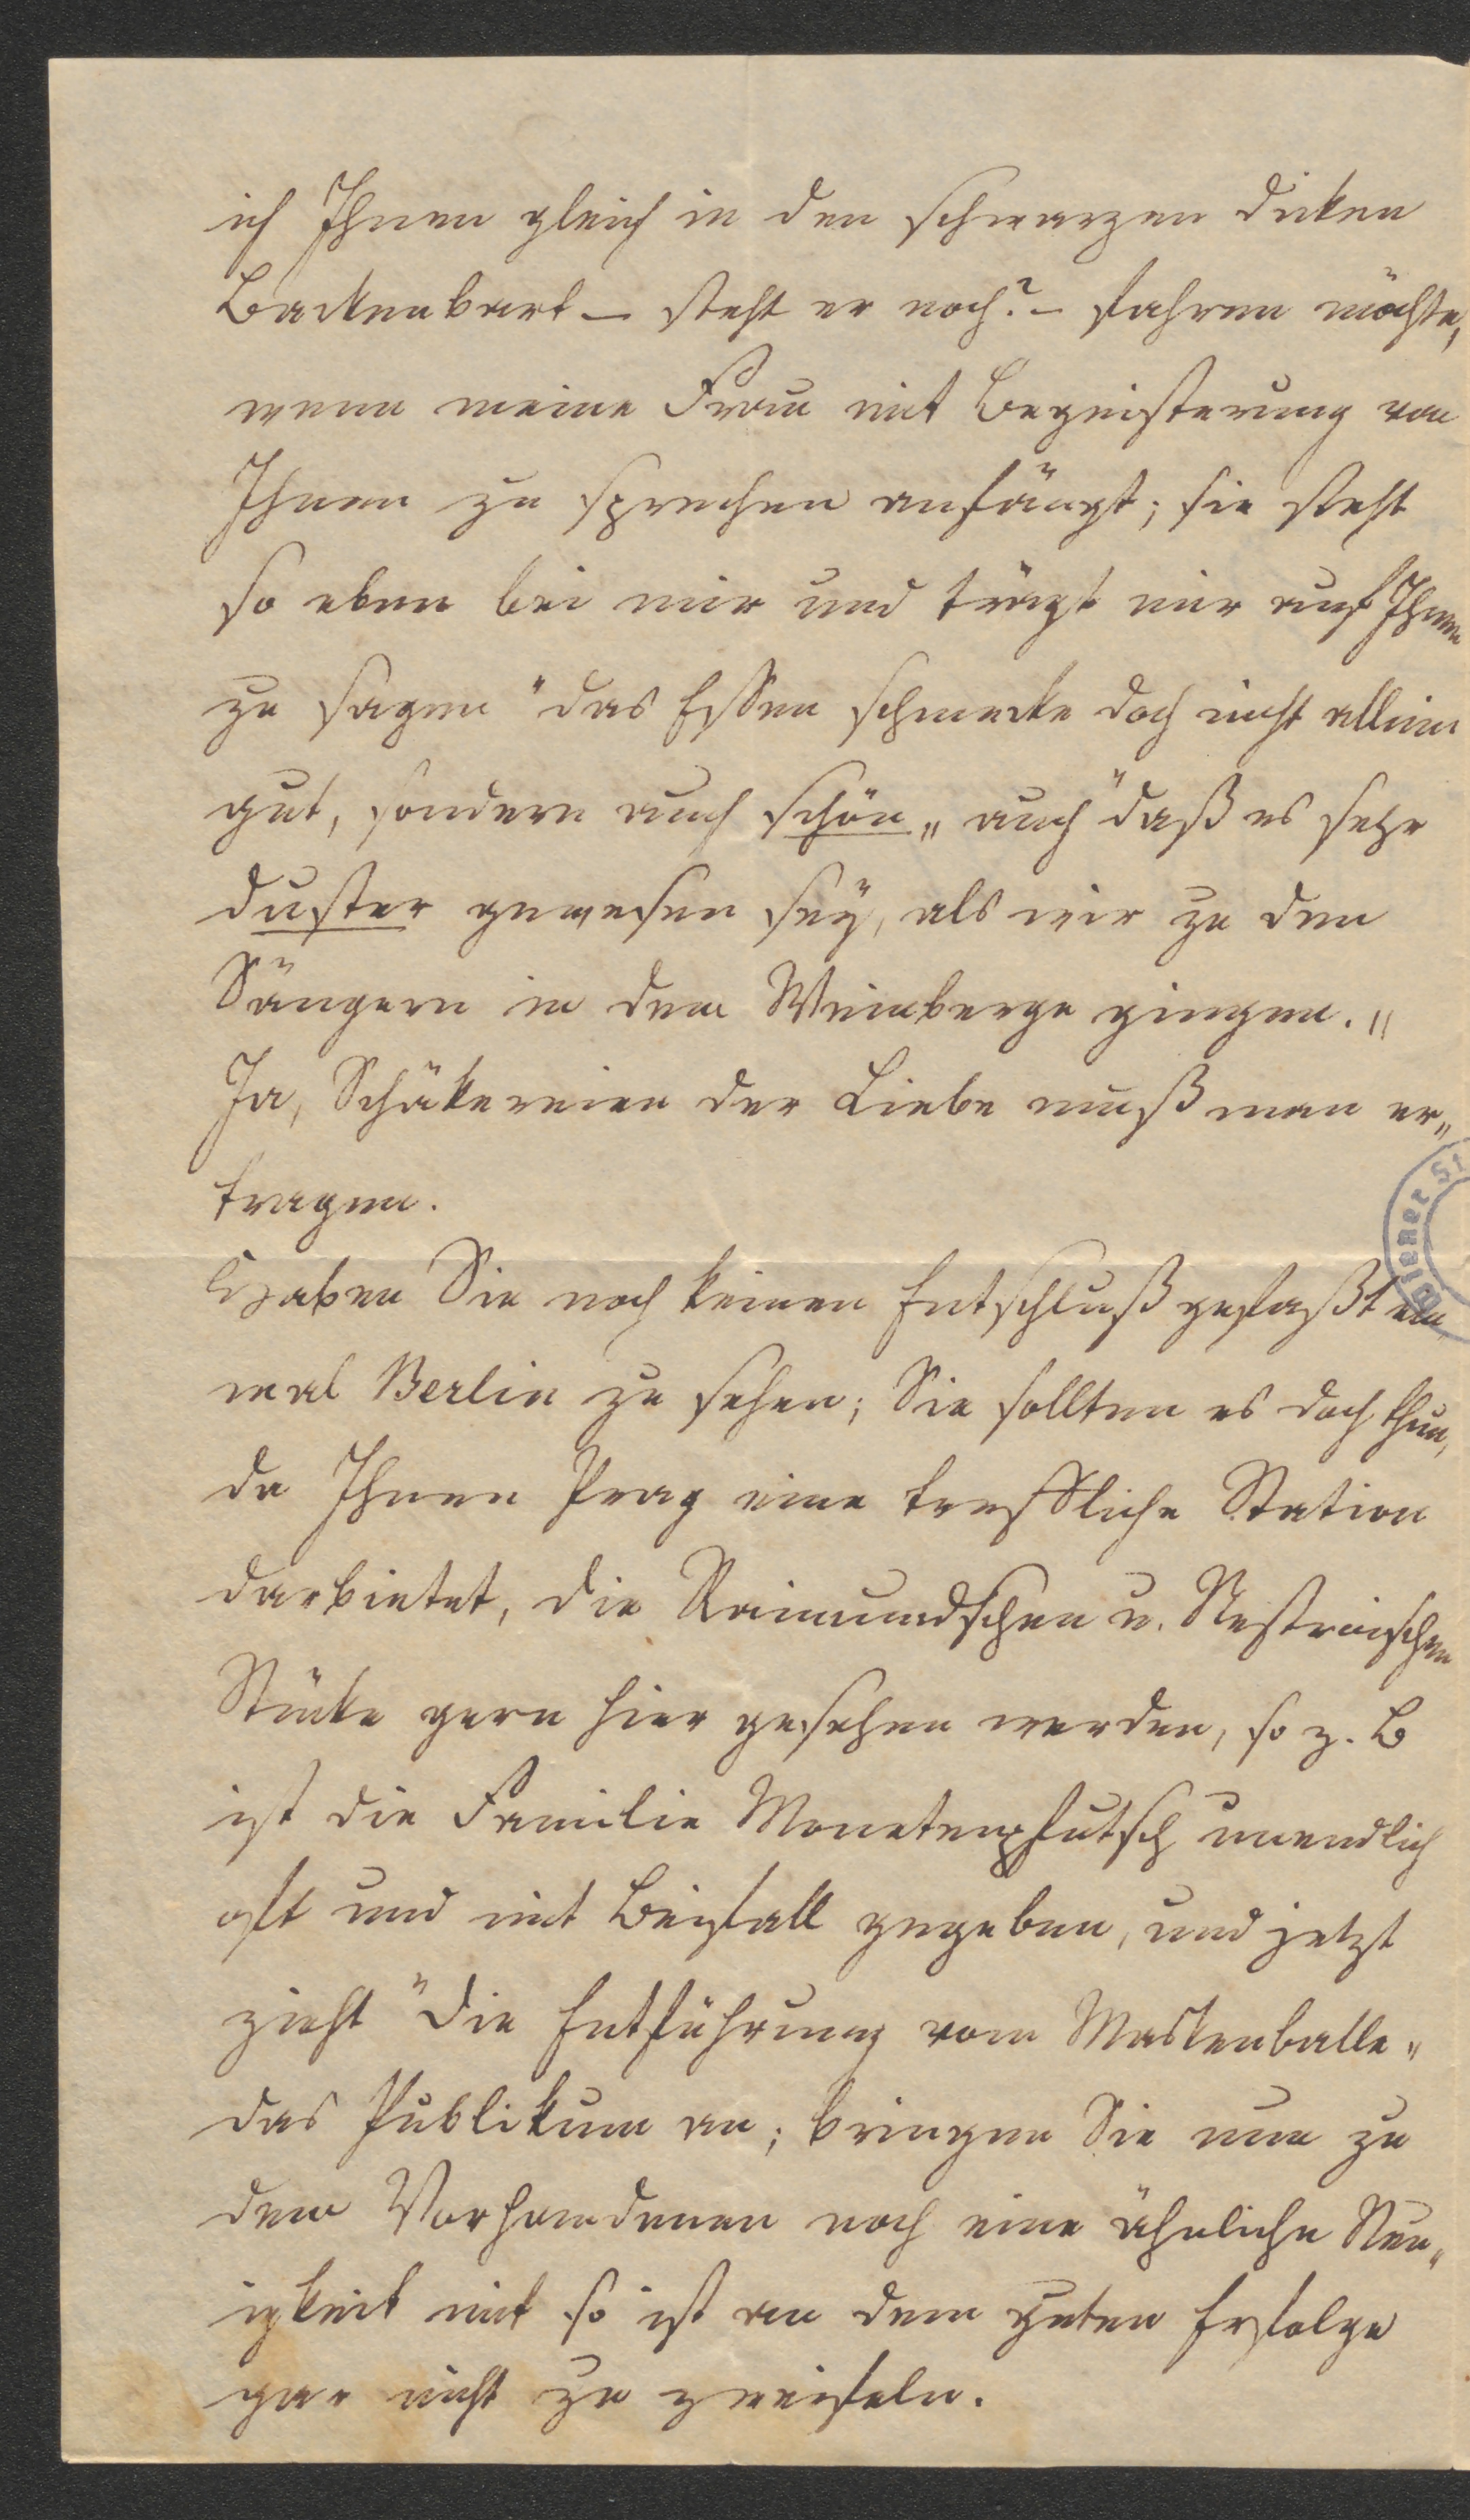 ich Ihnen gleich in den schwarzen dicken
Backenbart – steht er noch? – fahren möchte,
wenn meine Frau mit Begeisterung von
Ihnen zu sprechen anfängt; sie steht
so eben bei mir und trägt mir auf Ihnen
zu sagen "das Essen schmecke doch nicht allein
gut, sondern auch schön„ auch "daß es sehr
duster gewesen seÿ, als wir zu den
Sängern in dem Weinberge gingen.„
Ja, Schäkereien der Liebe muß man er„
tragen.
Haben Sie noch keinen Entschluß gefaßt ein
mal Berlin zu sehen; Sie sollten es doch thun,
da Ihnen Prag eine treffliche Station
darbietet, die Raimundschen u. Nestroischen
Stücke gern hier gesehen werden, so z. B
ist die Familie Monetenpfutsch unendlich
oft und mit Beifall gegeben, und jetzt
zieht "die Entführung vom Maskenballe„
das Publikum an; bringen Sie nun zu
dem Vorhandenen noch eine ähnliche Neu„
igkeit mit so ist an dem guten Erfolge
gar nicht zu zweifeln.